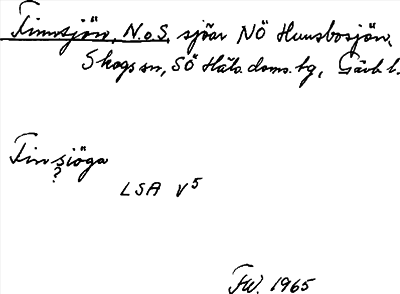 Finnsjön, N.o S. sjöar NÖ Hunsbosjön,
Skogs sn, SÖ Häls. doms. tg, Gävb. l.
Finsiöga
?
LSA V5
FW. 1965